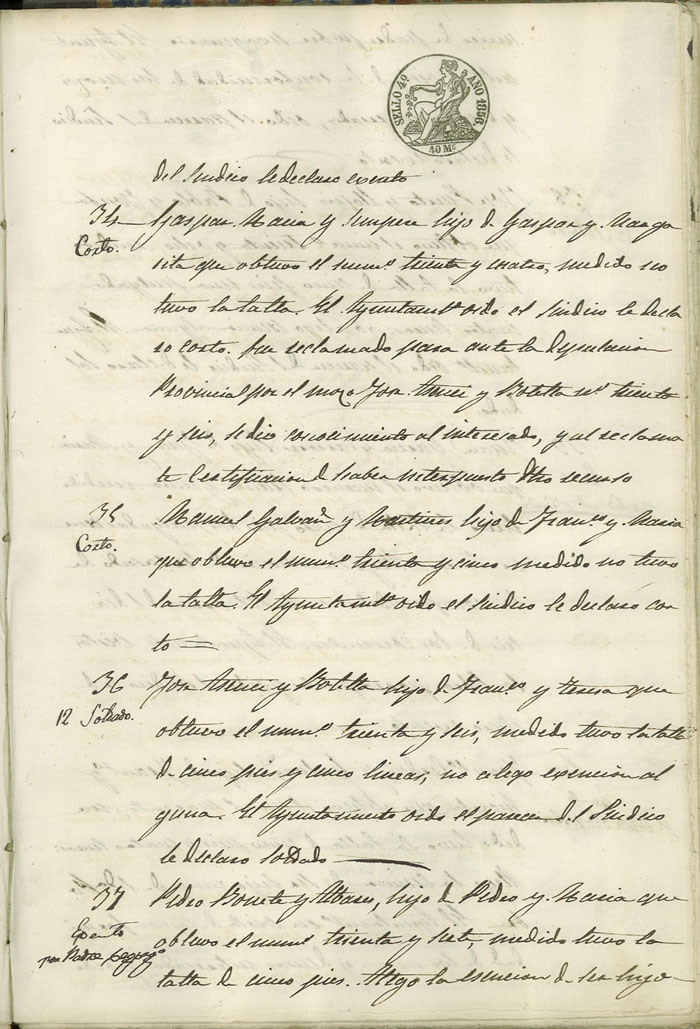 SELLO 4º AÑO 1856.
40 Ms
del Sindico le declaro exento
34 Gaspar Maria y Sempere hijo d. Gaspar y Marga
Corto. rita que obtuvo el numº treinta y cuatro, medido no
tuvo la talla. El Ayuntamtº oido el Sindico le decla
ro corto. Fue reclamado para ante la Diputacion
Provincial por el mozo Jose Asnci y Botella nº treinta
y seis, se dio conocimiento al interesado, y al reclaman
te Certificacion d haber interpuesto dho recurso
35 Manuel Galvañ y Martines hijo de Franco y Maria
Corto. que obtuvo el numº treinta y cinco medido no tuvo
la talla. El Ayuntamtº oido el Sindico le declaro cor
to
36 Jose Asnci y Botella hijo d. Franco y Teresa que
12 Soldado. obtuvo el numº treinta y seis, medido tuvo la talla
d. cinco pies y cinco lineas, no alego exencion al
guna. El Ayuntamiento oido el parecer d.l Sindico
le declaro Soldado
37 Pedro Bonete y Albaro, hijo d. Pedro y Maria que
Exento obtuvo el numº treinta y siete, medido tuvo la
por Padre talla de cinco pies. Alego la esencion d. ser hijo